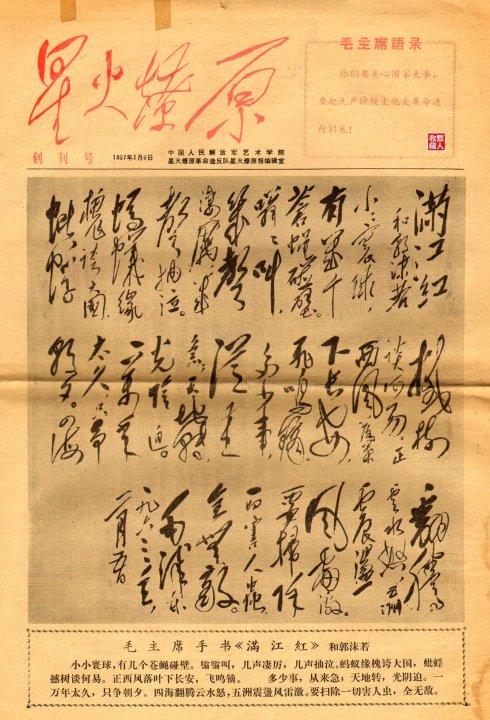 星火燎原
创刊号
1967年1月6日
中国人民解放军艺术学院
星火燎原革命造反队星火燎原报编辑室
毛主席語录
你们要关心国家大事，
要把无产阶级文化大革命进
行到底！
满江红
和郭沫若
小小寰球，
有几个
苍蝇碰壁。
嗡嗡叫
几声
凄厉几
声抽泣。
蚂蚁缘
槐夸大国
蚍蜉
撼树
谈何易。正
西风落叶
下长安，
飞鸣镝。
多少事，
从来
急，天地转，
光阴迫。
一万年
太久，只争
朝夕。四海
翻腾
云水怒，五洲
震盪
风雷激。
要扫除
一切害人虫
全无敌。
毛泽东
一九六三年
二月五日
毛主席手书《满江红》和郭沫若
小小寰球，有几个苍蝇碰壁。嗡嗡叫，几声凄厉，几声抽泣。蚂蚁缘槐夸大国，蚍蜉
撼树谈何易。正西风落叶下长安，飞鸣镝。　　多少事，从来急；天地转，光阴迫。一
万年太久，只争朝夕。四海翻腾云水怒，五洲震盪风雷激。要扫除一切害人虫，全无敌。